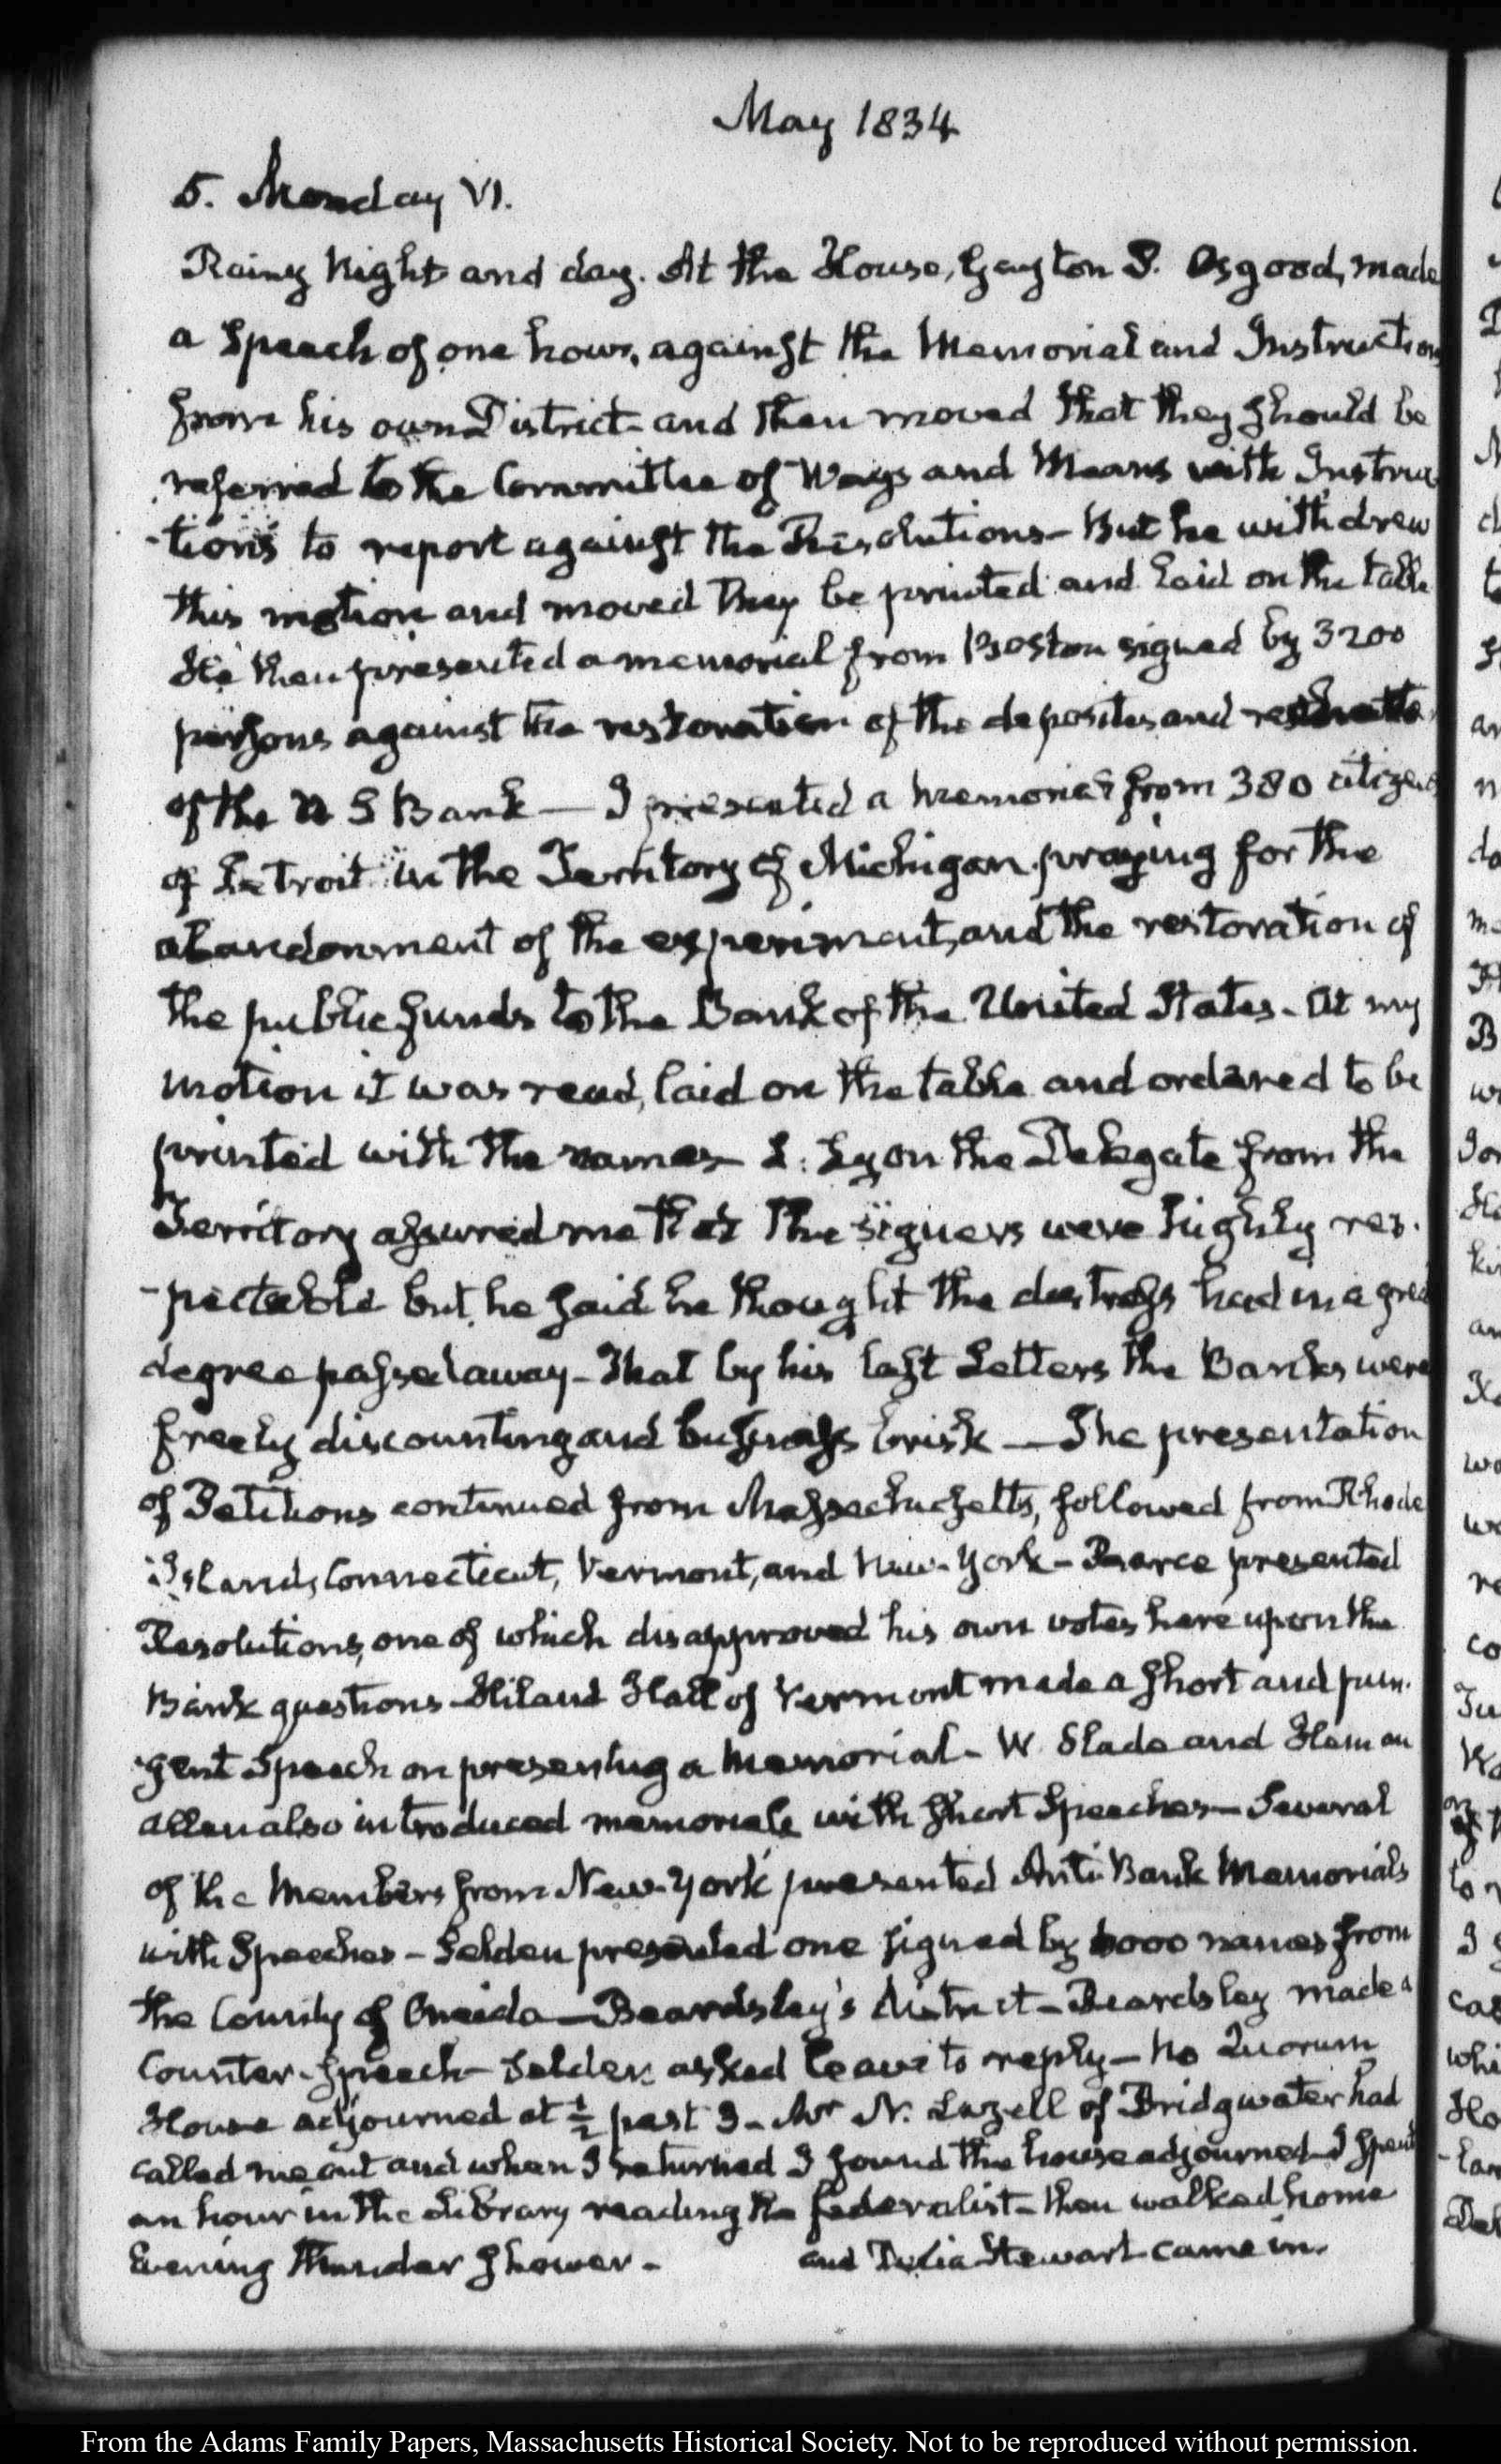 May 1834
5. Monday VI.
Rainy Night and day. At the House, Gayton P. Osgood, made
a Speech of one hour, against the Memorial and Instruction
from his own District and then moved that they should be
referred to the Committee of Ways and Means with Instruc
-tions to report against the Resolutions – But he withdrew
this motion and moved they be printed and laid on the table
He then presented a memorial from Boston signed by 3200
persons against the restoration of the deposites and
of the U S Bank — I presented a Memorial from 380 citizens
of Detroit in the Territory of Michigan praying for the
abandonment of the experiment, and the restoration of
the public funds to the Bank of the United States. At my
motion it was read, laid on the table and ordered to be
printed with the names – L. Lyon the Delegate from the
Territory assured me that the signers were highly res-
-pectable but he said he thought the distress had in a great
degree passed away – That by his last Letters the Banks were
freely discounting and business brisk — The presentation
of Petitions continued from Massachusetts, followed from Rhode
Island, Connecticut, Vermont, and New-York – Pearce presented
Resolutions, one of which disapproved his own votes here upon the
Bank questions – Hiland Hall of Vermont made a short and pun-
gent Speech on presenting a Memorial – W. Slade and Heman
Allen also introduced memorials with short Speeches – Several
of the Members from New-York presented Anti Bank Memorials
with Speeches – Selden presented one signed by 6000 names from
the County of Oneida — Beardsley's District – Beardsley made a
Counter-speech – Selden asked leave to reply – No Quorum
House adjourned at ½ past 3 – Mr N. Lazell of Bridgwater had
called me out and when I returned I found the house adjourned – I spent
an hour in the Library reading the federalist – then walked home
Evening Thunder Shower – and Julia Stewart came in.
From the Adams Family Papers, Massachusetts Historical Society. Not to be reproduced without permission.